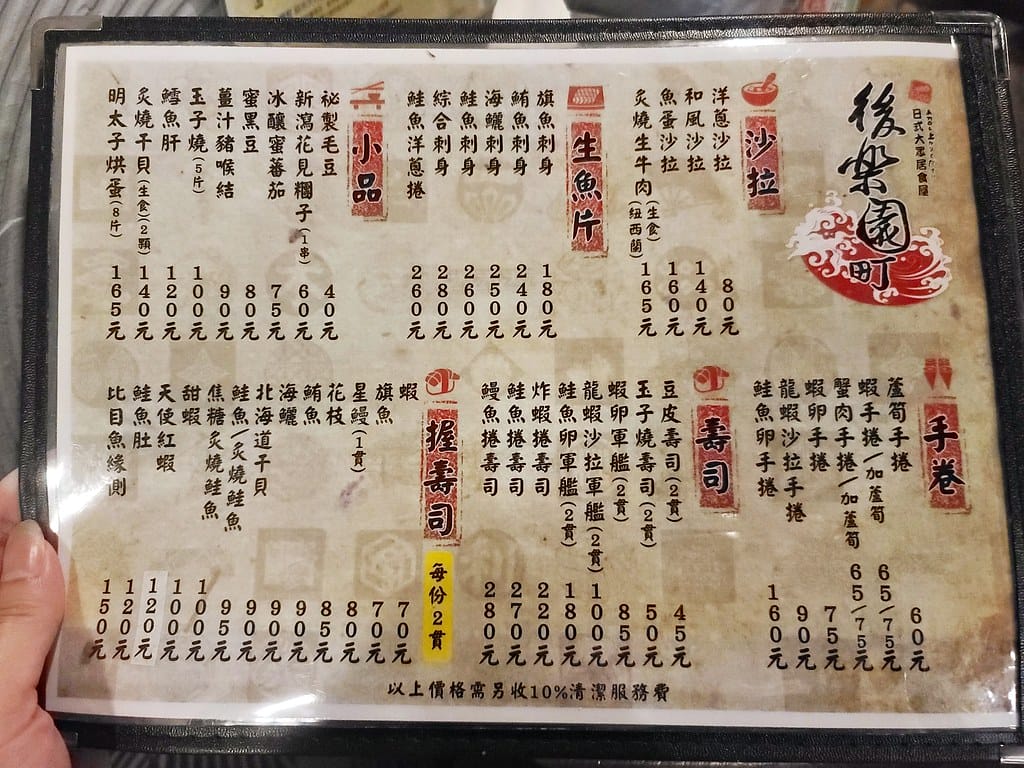 後樂園町
日式大眾居食屋
沙拉
洋蔥沙拉 80元
和風沙拉 140元
魚蛋沙拉 160元
炙燒生牛肉(生食)(紐西蘭) 165元
生魚片
旗魚刺身 180元
鮪魚刺身 240元
海鱺刺身 250元
鮭魚刺身 260元
綜合刺身 280元
鮭魚洋蔥捲 260元
小品
祕製毛豆 40元
新瀉花見糰子(1串) 60元
冰釀蜜蕃茄 75元
蜜黑豆 80元
薑汁豬喉結 90元
玉子燒(5片) 100元
鱈魚肝 120元
炙燒干貝(生食)(2顆) 140元
明太子烘蛋(8片) 165元
手卷
蘆筍手捲 60元
蝦手捲/加蘆筍 65/75元
蟹肉手捲/加蘆筍 65/75元
蝦卵手捲 75元
龍蝦沙拉手捲 90元
鮭魚卵手捲 160元
壽司
豆皮壽司(2貫) 45元
玉子燒壽司(2貫) 50元
蝦卵軍艦(2貫) 85元
龍蝦沙拉軍艦(2貫) 100元
鮭魚卵軍艦(2貫) 180元
炸蝦捲壽司 220元
鮭魚捲壽司 270元
鰻魚捲壽司 280元
握壽司
每份2貫
蝦 70元
旗魚 70元
星鰻(1貫) 80元
花枝 85元
鮪魚 90元
海鱺 90元
北海道干貝 90元
鮭魚/炙燒鮭魚 95元
焦糖炙燒鮭魚 95元
甜蝦 100元
天使紅蝦 100元
鮭魚肚 120元
比目魚緣側 150元
以上價格需另收10%清潔服務費